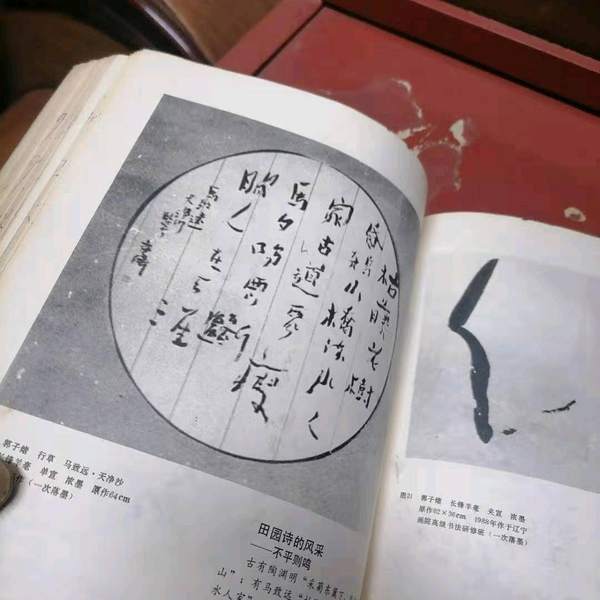 枯藤老樹
昏鴉小橋流水人
家古道西風瘦
馬夕陽西下斷
腸人在天涯
馬致遠
天净沙
郭子绪 行草 马致远·天净沙
长锋羊毫 单宣 浓墨 原作64cm
作（一次落墨）
田园诗的风采
——不平则鸣
古有陶渊明“采菊东篱下，
山”；有马致远“
水人家”
图21 郭子绪 长锋羊毫 夹宣 浓墨
原作92×36cm 1988年作于辽宁
画院高级书法研修班（一次落墨）